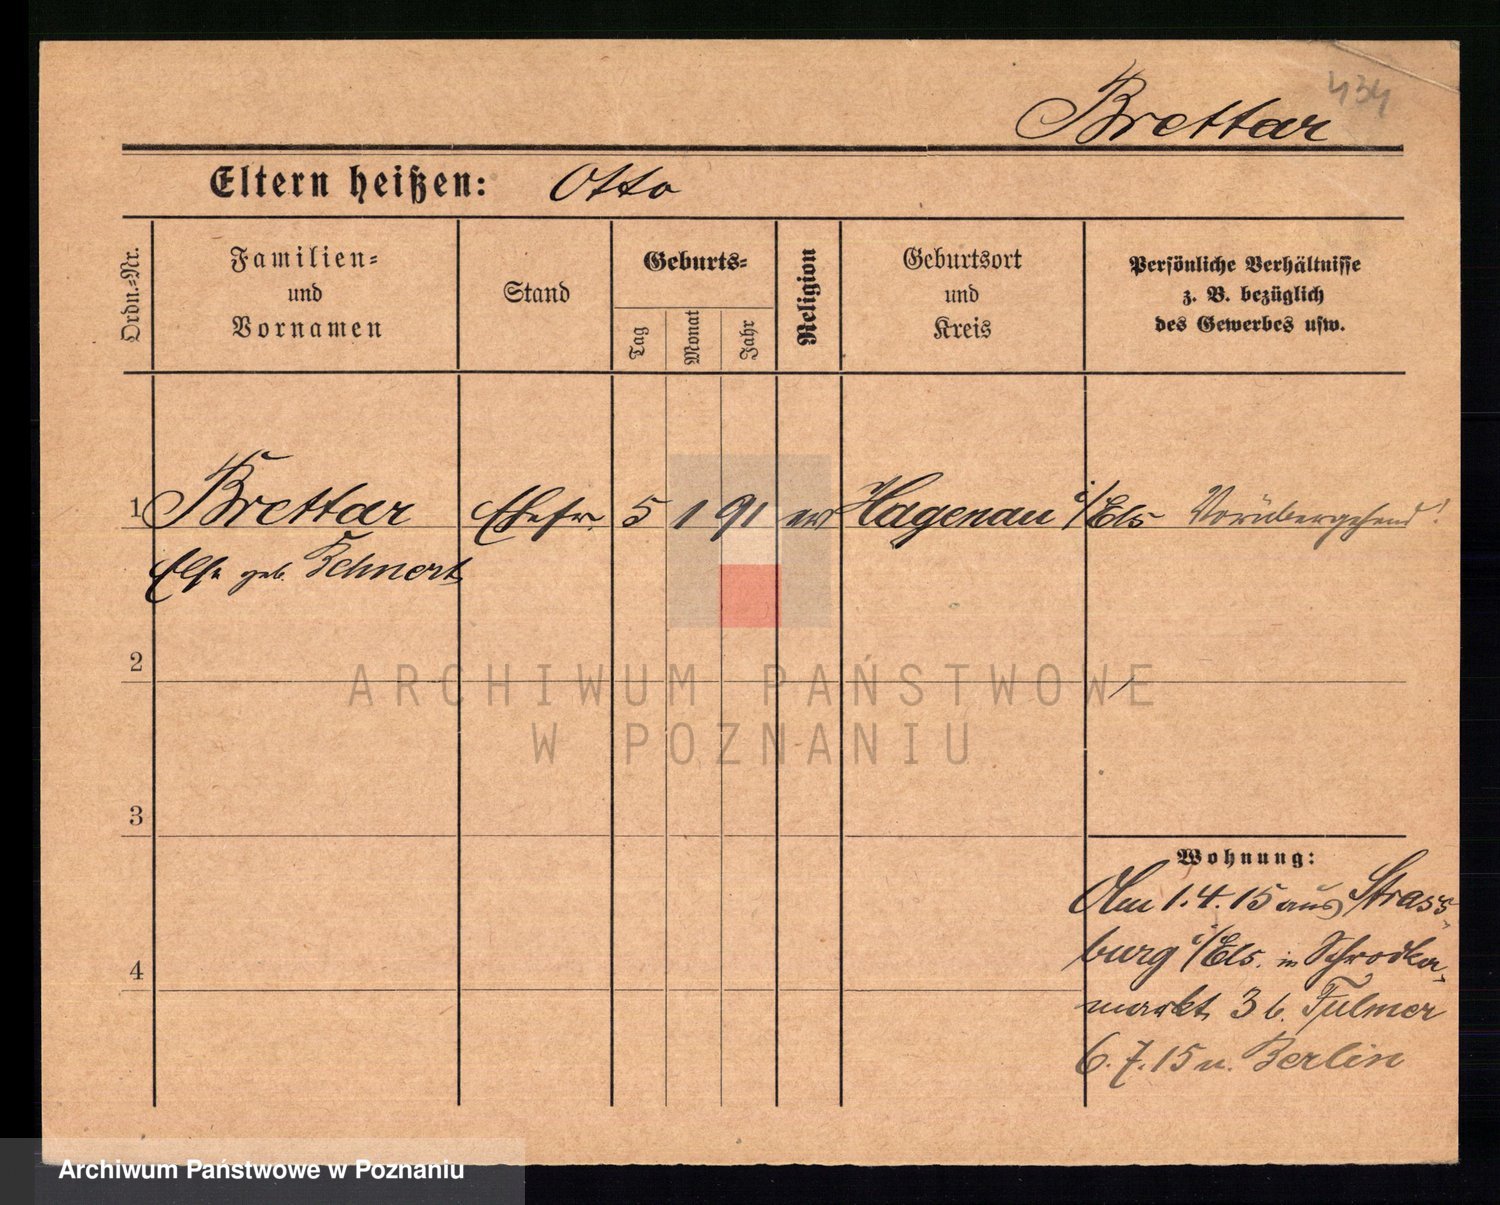 434
Brettar
Eltern heißen: Otto
Ordn.-Nr.
Familien-
und
Vornamen
Stand
Geburts-
Tag
Monat
Jahr
Religion
Geburtsort
und
Kreis
Persönliche Verhältnisse
z. B. bezüglich
des Gewerbes usw.
1 Brettar Ehefr. 5 1 91 ev Hagenau i/Els Vorübergehend!
Else geb.
2
3
4
Wohnung:
Am 1.4.15 aus Strass-
burg i/Els. in Schrodka-
markt 3 b. Fulmer
6.7.15 n. Berlin
ARCHIWUM PAŃSTWOWE
W POZNANIU
Archiwum Państwowe w Poznaniu